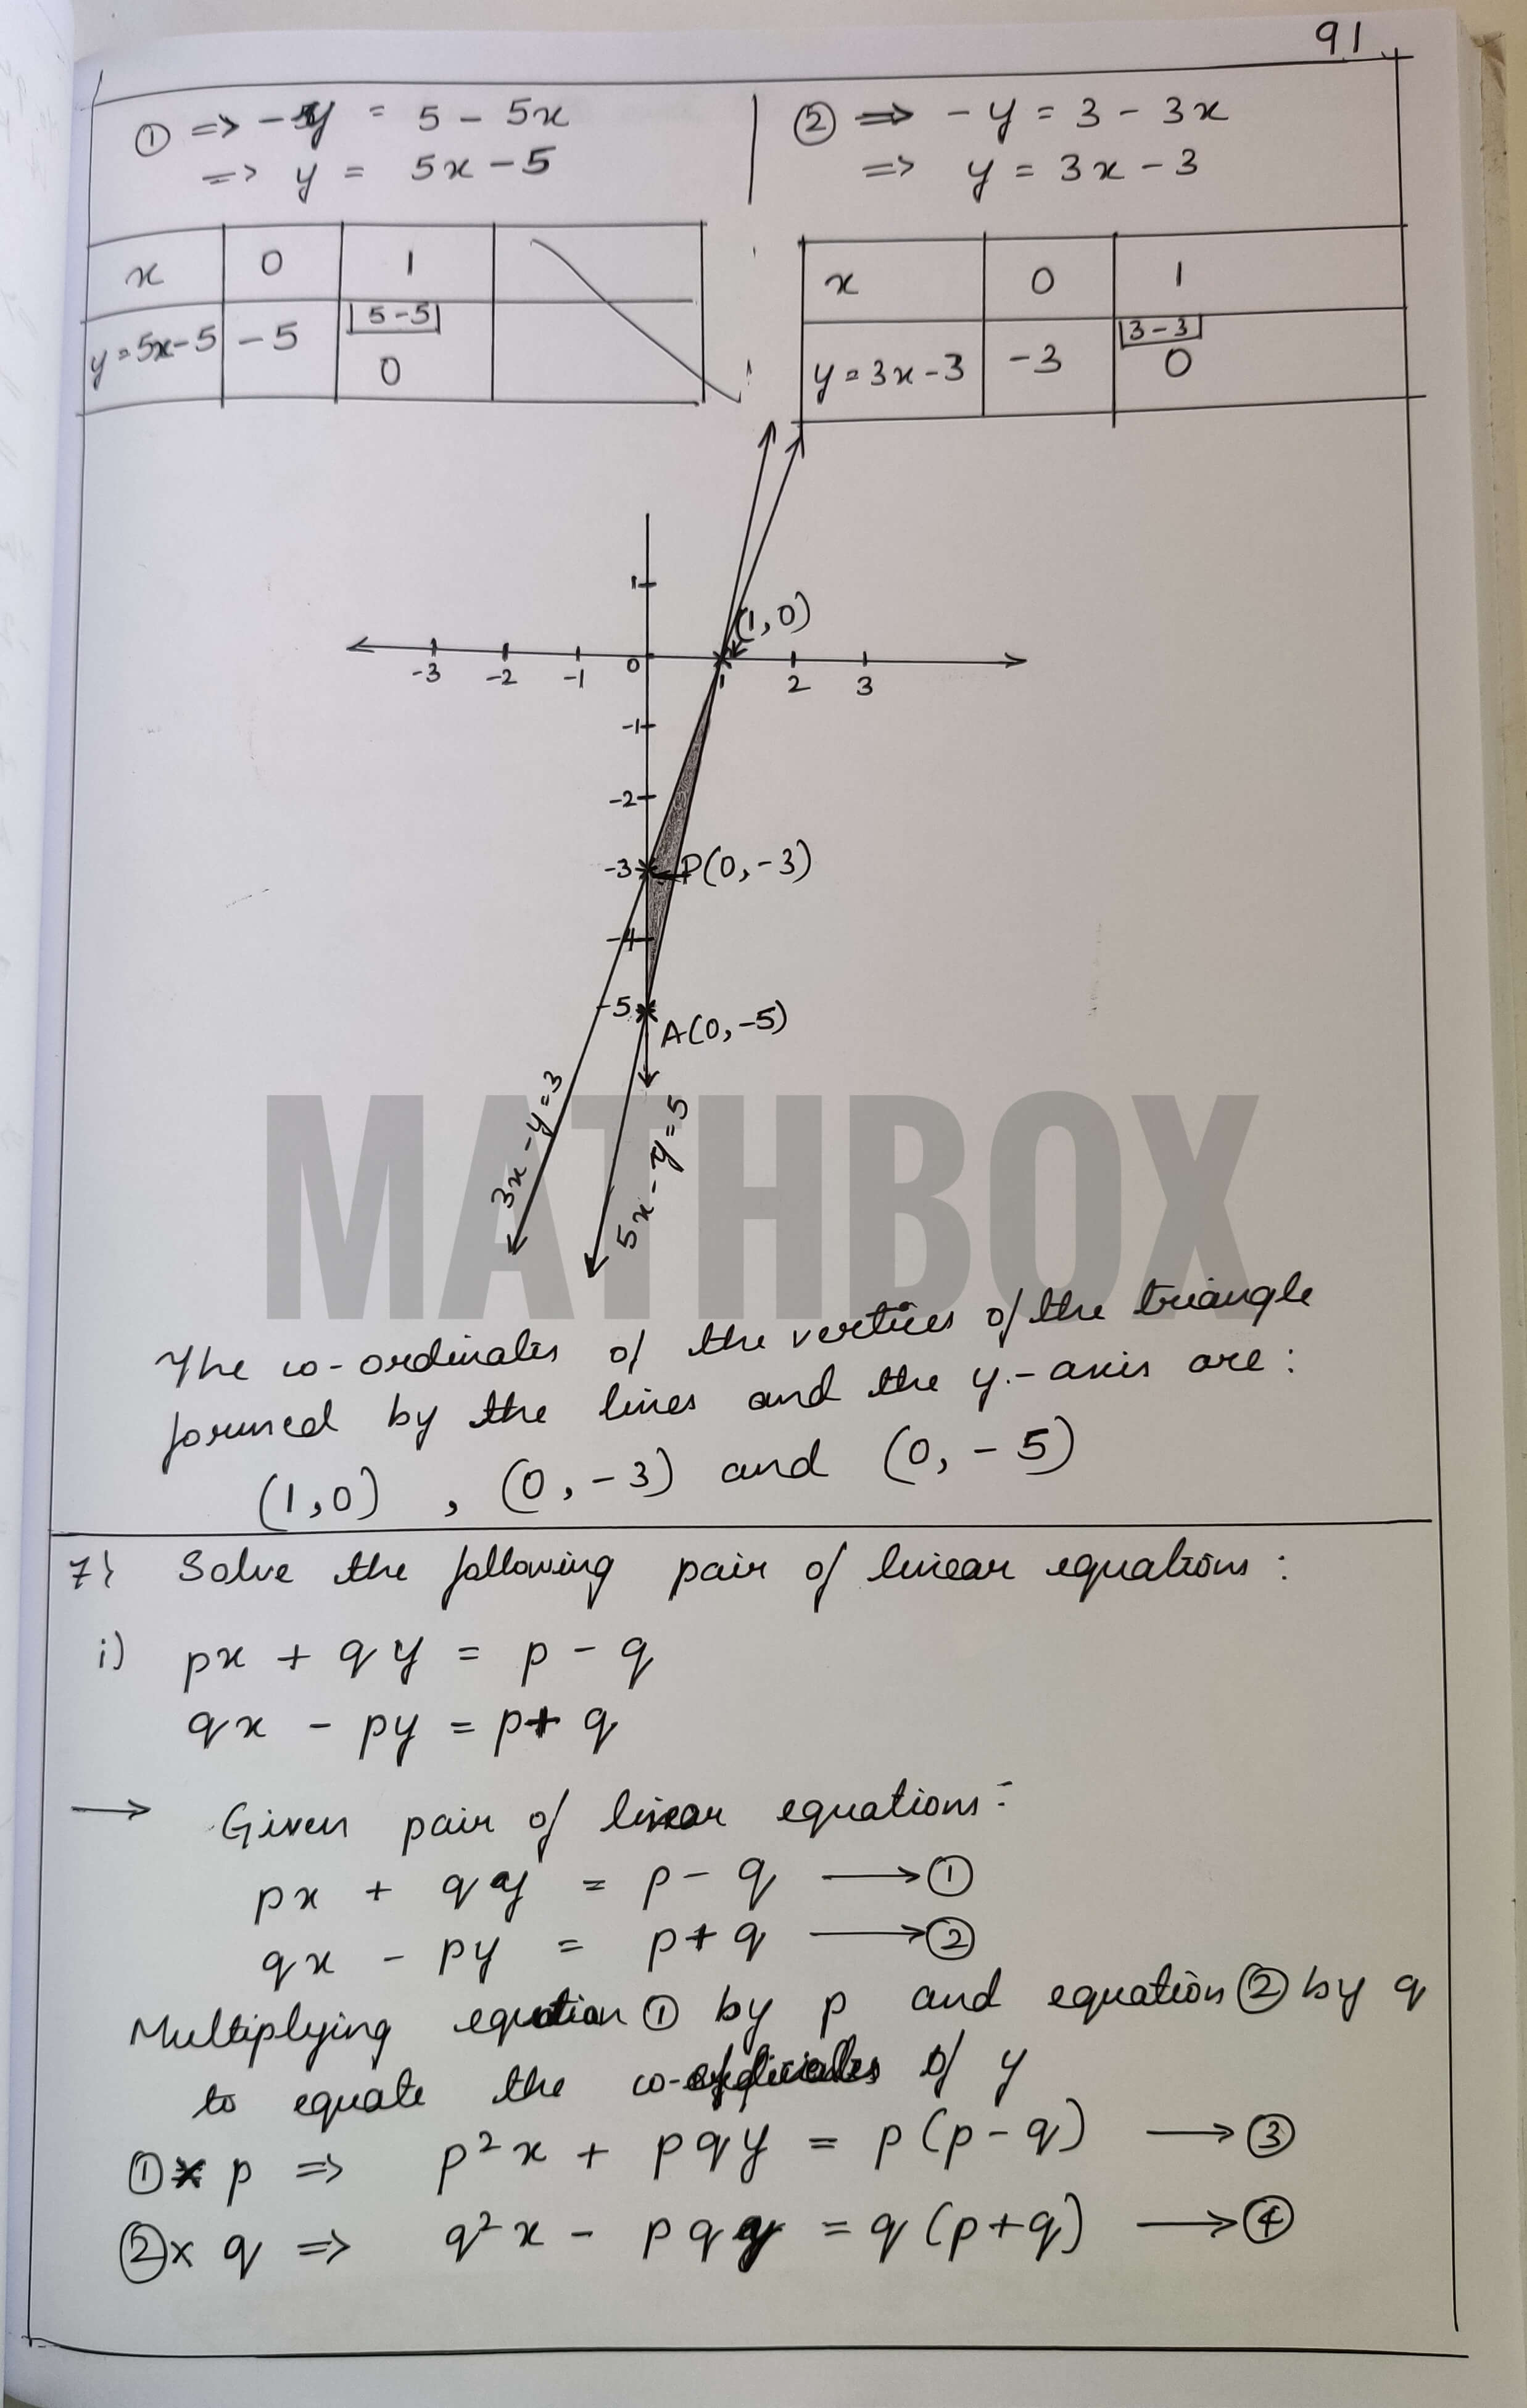 91
① => -y = 5 - 5x
=> y = 5x - 5
② => -y = 3 - 3x
=> y = 3x - 3
x 0 1
y = 5x-5 -5 5-5 0
x 0 1
y = 3x-3 -3 3-3 0
1
(1,0)
-3 -2 -1 0 1 2 3
-1
-2
-3 P(0,-3)
-4
-5
A(0,-5)
3x - y = 3
5x - y = 5
MATHBOX
The co-ordinates of the vertices of the triangle
formed by the lines and the y-axis are:
(1,0) , (0,-3) and (0,-5)
7} Solve the following pair of linear equations:
i) px + qy = p - q
qx - py = p + q
→ Given pair of linear equations:
px + qy = p - q → ①
qx - py = p + q → ②
Multiplying equation ① by p and equation ② by q
to equate the co-efficients of y
① × p => p²x + pqy = p(p-q) → ③
② × q => q²x - pqy = q(p+q) → ④